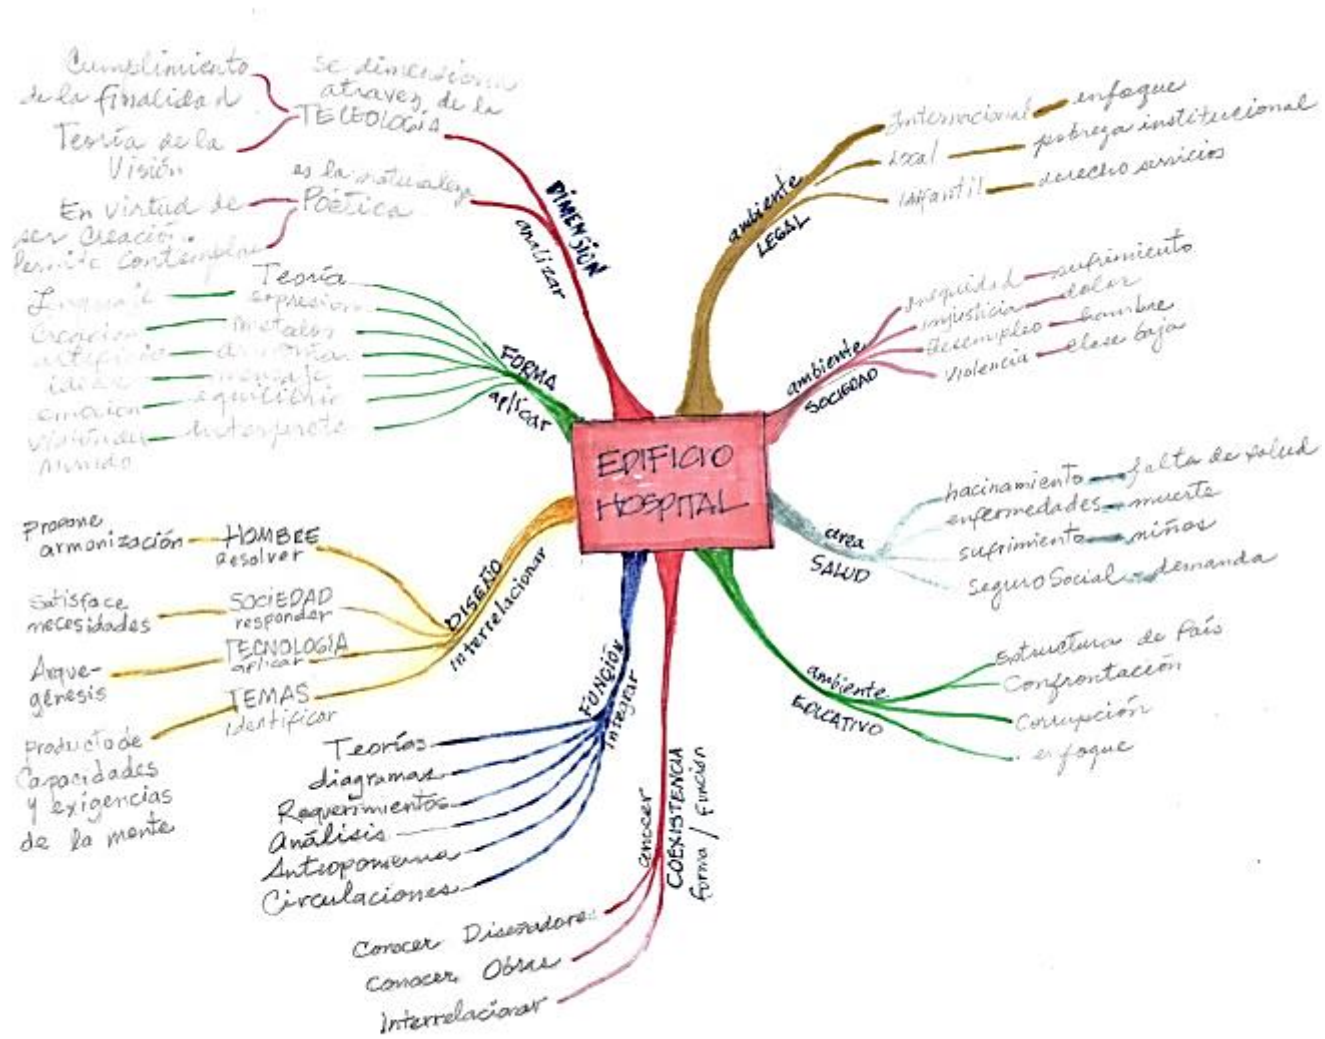 EDIFICIO
HOSPITAL
DIMENSIÓN
analizar
se dimensiona
atraves de la
TELEOLOGIA
Cumplimiento
de la finalidad
Teoría de la
Visión
es la naturaleza
Poética
En virtud de
ser creación
Permite contemplar
FORMA
aplicar
Teoría
expresion
Lenguaje
metales
Creación
armonía
arteficio
mensaje
ideas
equilibrio
emocion
Interprete
visión del
mundo
DISEÑO
interrelacionar
HOMBRE
resolver
Propone
armonización
SOCIEDAD
responder
Satisface
necesidades
TECNOLOGIA
aplicar
Arque-
génesis
TEMAS
identificar
Producto de
Capacidades
y exigencias
de la mente
FUNCIÓN
integrar
Teorías
diagramas
Requerimientos
Análisis
Circulaciones
COEXISTENCIA
forma / función
conocer
Conocer Diseñadores
Conocer Obras
Interrelacionar
ambiente
LEGAL
Internacional enfoque
Local pobreza institucional
Infantil derecho servicios
ambiente
SOCIEDAD
inequidad sufrimiento
injusticia dolor
Desempleo hambre
Violencia clase baja
area
SALUD
hacinamiento falta de salud
enfermedades muerte
sufrimiento niños
Seguro Social demanda
ambiente
EDUCATIVO
Estructura de País
Confrontación
Corrupción
enfoque